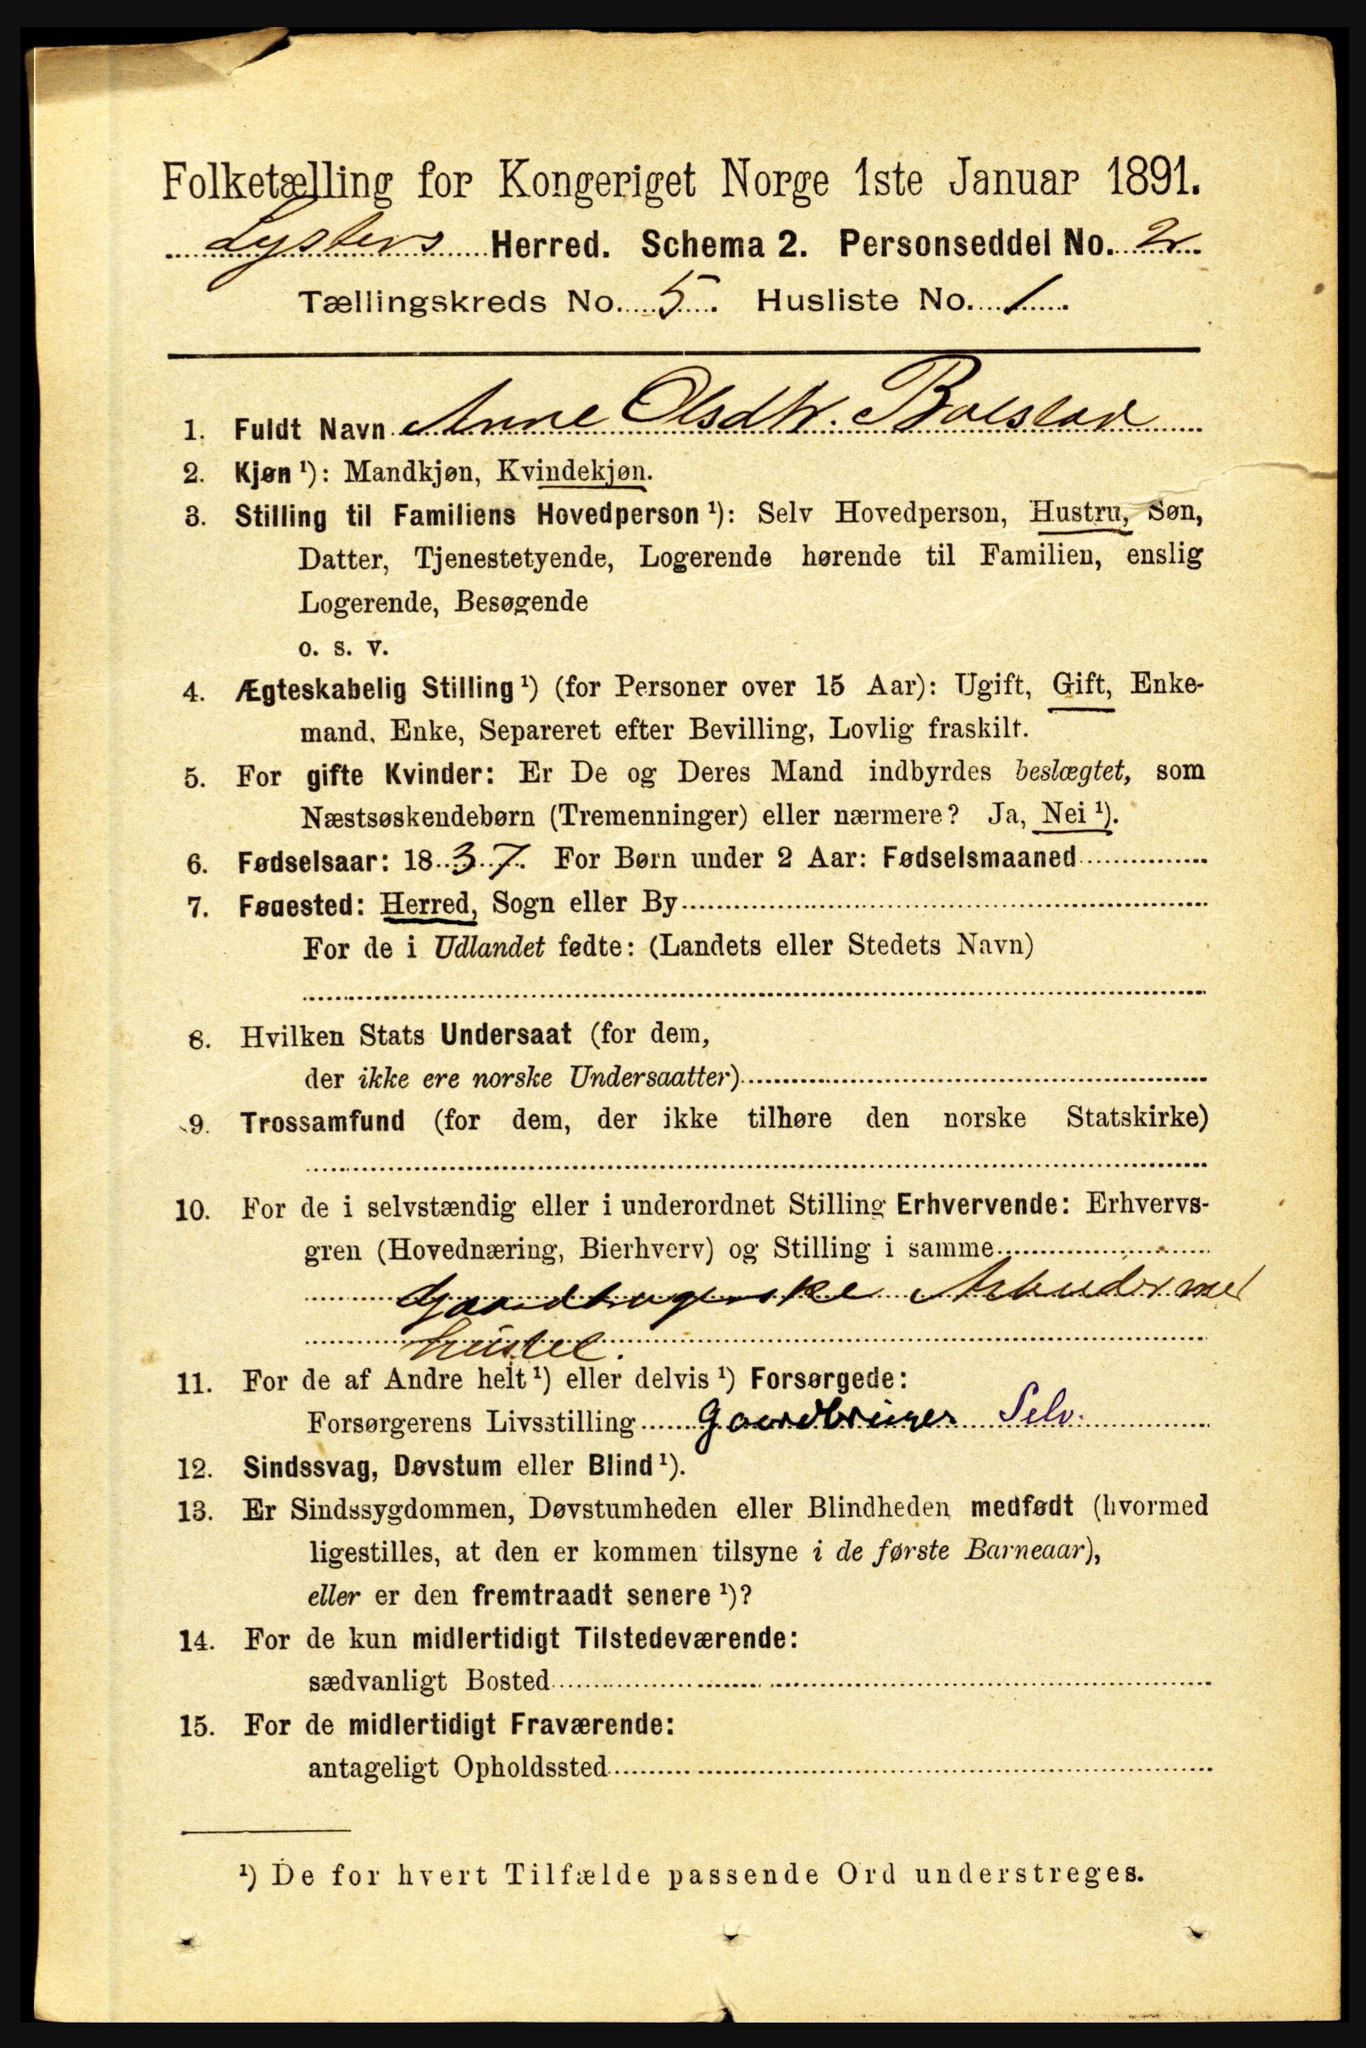 Folketælling for Kongeriget Norge 1ste Januar 1891.
Lysters Herred. Schema 2. Personseddel No. 2
Tællingskreds No. 5. Husliste No. 1.
1. Fuldt Navn Anne Olsdtr. Bolstad
2. Kjøn ¹): Mandkjøn, Kvindekjøn.
3. Stilling til Familiens Hovedperson ¹): Selv Hovedperson, Hustru, Søn,
Datter, Tjenestetyende, Logerende hørende til Familien, enslig
Logerende, Besøgende
o. s. v.
4. Ægteskabelig Stilling ¹) (for Personer over 15 Aar): Ugift, Gift, Enke-
mand, Enke, Separeret efter Bevilling, Lovlig fraskilt.
5. For gifte Kvinder: Er De og Deres Mand indbyrdes beslægtet, som
Næstsøskendebørn (Tremenninger) eller nærmere? Ja, Nei ¹).
6. Fødselsaar: 1837. For Børn under 2 Aar: Fødselsmaaned
7. Fødested: Herred, Sogn eller By
For de i Udlandet fødte: (Landets eller Stedets Navn)
8. Hvilken Stats Undersaat (for dem,
der ikke ere norske Undersaatter)
9. Trossamfund (for dem, der ikke tilhøre den norske Statskirke)
10. For de i selvstændig eller i underordnet Stilling Erhvervende: Erhvervs-
gren (Hovednæring, Bierhverv) og Stilling i samme
Gaardbrugerske Arbeider med
huslel.
11. For de af Andre helt ¹) eller delvis ¹) Forsørgede:
Forsørgerens Livsstilling Gaardbruger Selv.
12. Sindssvag, Døvstum eller Blind ¹).
13. Er Sindssygdommen, Døvstumheden eller Blindheden medfødt (hvormed
ligestilles, at den er kommen tilsyne i de første Barneaar),
eller er den fremtraadt senere ¹)?
14. For de kun midlertidigt Tilstedeværende:
sædvanligt Bosted
15. For de midlertidigt Fraværende:
antageligt Opholdssted
¹) De for hvert Tilfælde passende Ord understreges.